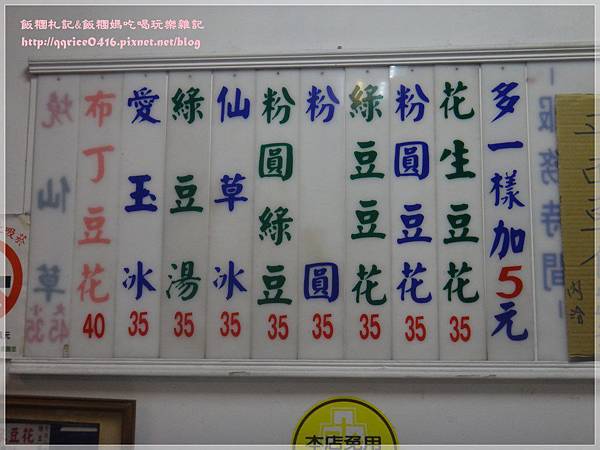 飯糰札記&飯糰媽吃喝玩樂雜記
http://qqrice0416.pixnet.net/blog
多一樣加5元
花生豆花 35
粉圓豆花 35
綠豆豆花 35
粉圓 35
粉圓綠豆 35
仙草冰 35
綠豆湯 35
愛玉冰 35
布丁豆花 40
燒仙草 大45 小35
服務時間
元
豆花
本店免用